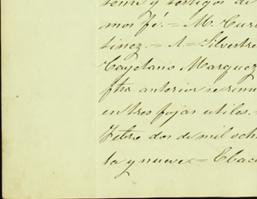 como y testigos de
mos fé.= M. Curi
tinez.= A= Silvestre
Cayetano Marquez
fha anterior se
en tres fojas utiles.
Febro dos de mil och
ta y nueve=